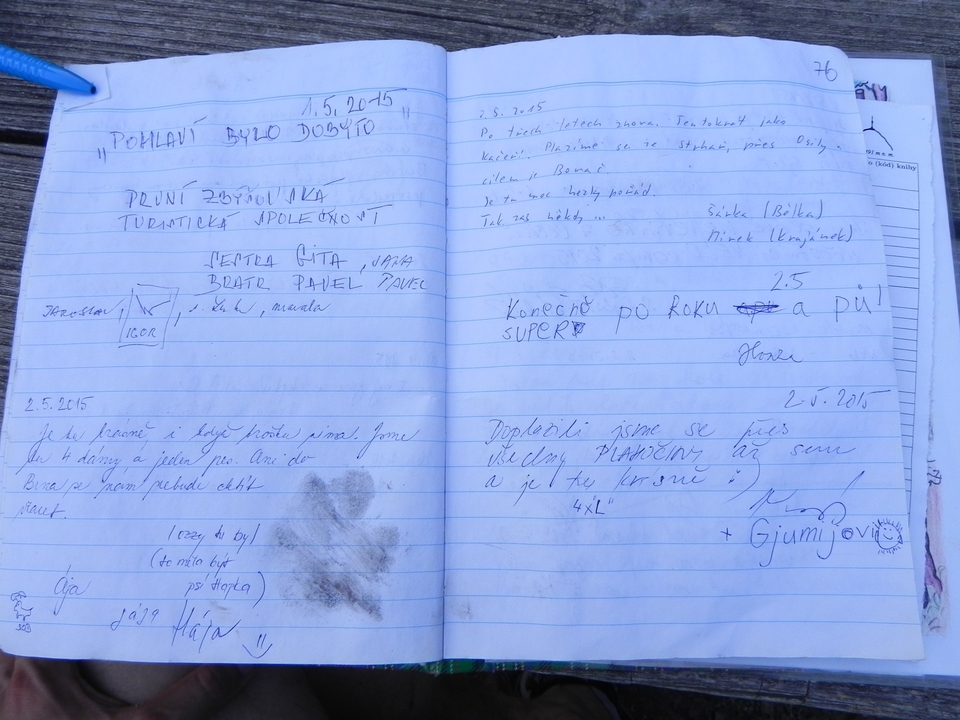 1.5.2015
„POHLAVÍ BYLO DOBYTO"
PRVNÍ ZBÝŠOVSKÁ
TURISTICKÁ SPOLEČNOST
SESTRA GITA, JANA
BRATR PAVEL PAVEL
JAROSLAV, IGOR,
2.5.2015
Je tu krásně i když trošku zima. Jsme
tu 4 dámy a jeden pes. Ani do
Brna se nám nebude chtít
vracet.
Ozzy tu byl
(to měla být
psí tlapka)
Ája
Jája Hája
76
2.5.2015
Po třech letech znova. Tentokrát jako
kačeři. Plazíme se ze Strhař, přes Osiky
cílem je
Je tu moc hezky pořád.
Tak zas někdy ...
Šárka (Bělka)
Mirek (Krajánek)
2.5
Konečně po ROKU a pů!
SUPER
Honza
2.5.2015
Doplazili jsme se přes
všechny PLAHOČINY až sem
a je tu krásně :)
4x"L"
+ Gjumijovi